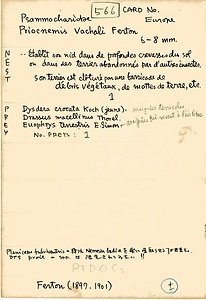 566 CARD No.
Psammocharidae Europe
Priocnemis Vachali Ferton
6-8 mm.
NEST
Etablit son nid dans de profondes crevasses du sol
ou dans des terriers abandonnés par d'autres insectes.
Son terrier est clôturé par une barricade de
débris végétaux, de mottes de terre, etc.
1
PREY
Dysdera crocata Koch (jeune) araignées terricoles
Drassus macellinus Thorel.
Euophrys terrestris E. Simon
No. PREYS: 1
PTDOC
Ferton (1897. 1901)
1